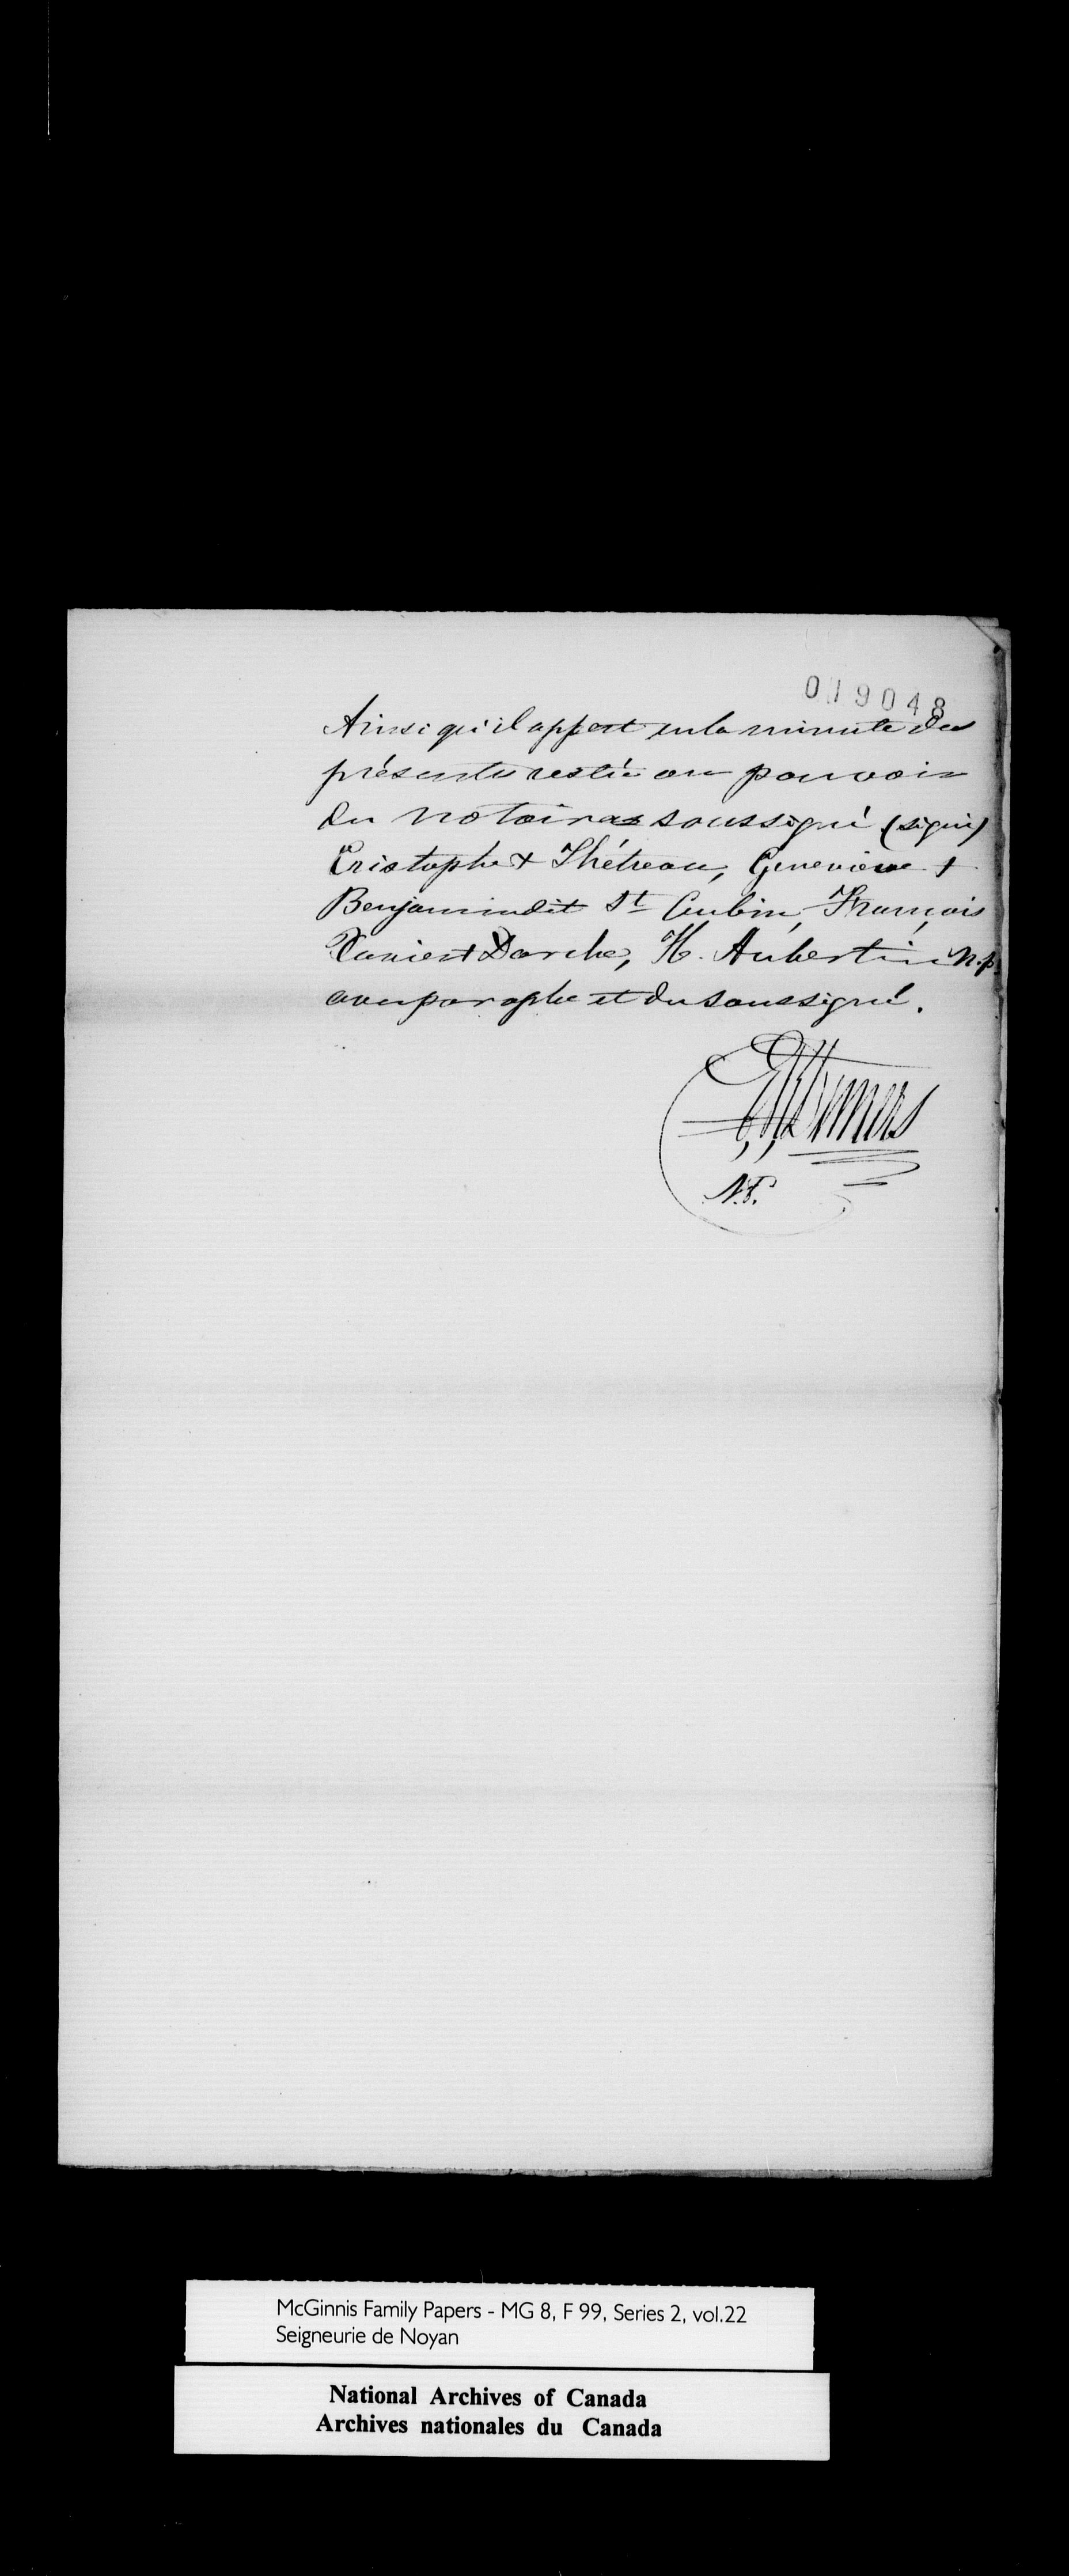 019048
Ainsi qu'il appert en la minute des
présentes restée au pouvoir
du notaire soussigné (signé)
Cristophe + Thétreau, Geneviève +
Benjamin dit St Aubin, François
Xavier + Darche, H. Aubertin N.p.
avec paraphe et du soussigné.
N.P.
McGinnis Family Papers - MG 8, F 99, Series 2, vol.22
Seigneurie de Noyan
National Archives of Canada
Archives nationales du Canada